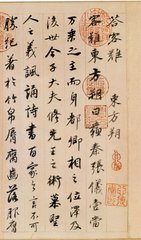 答客難
東方朔
客難東方朔曰蘇秦張儀壹當
萬乘之主而身都卿相之位澤及
後世今子大夫修先王之術慕聖
人之義諷誦詩書百家之言不可
勝記著於竹帛脣腐齒落服膺